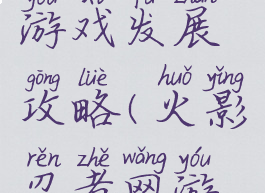 yóu xì fā zhǎn
游戏发展
gōng lüè huǒ yǐng
攻略(火影
rěn zhě wǎng yóu
忍者网游